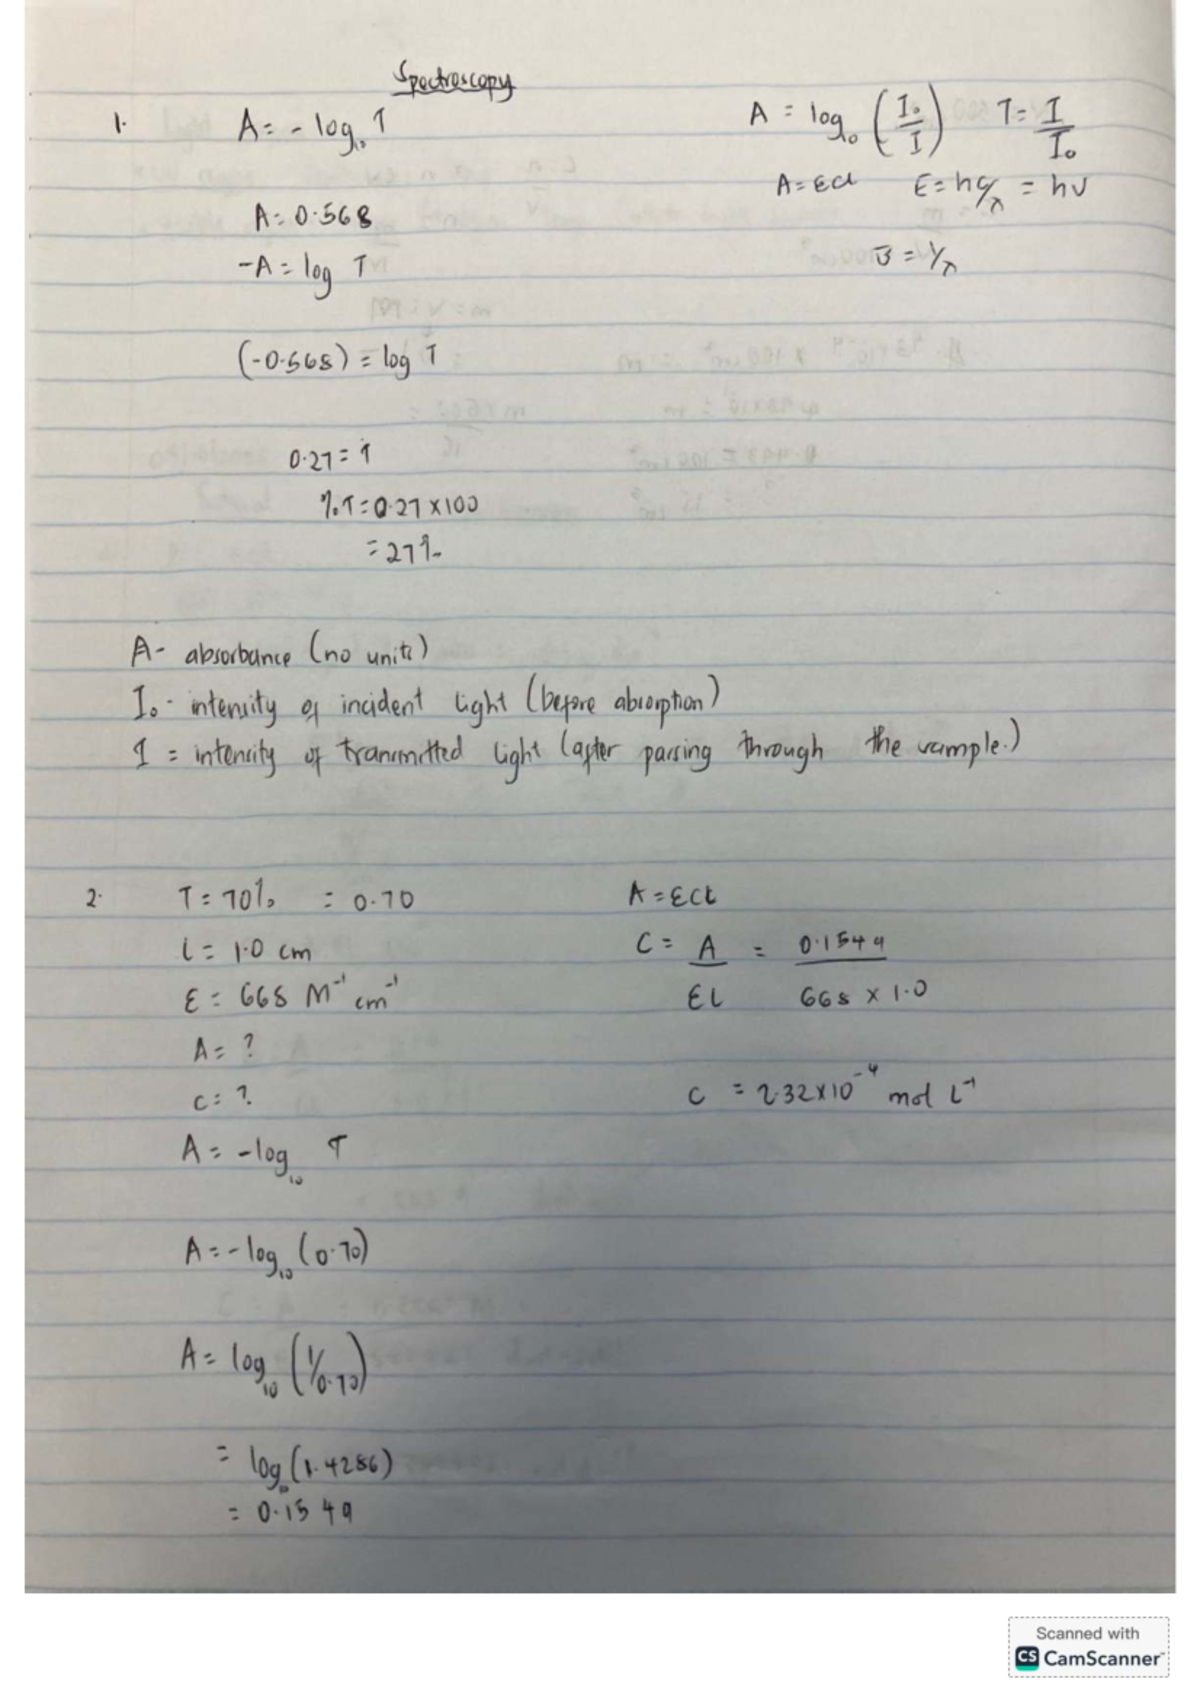 Spectroscopy
1. A = - log₁₀ T
A = log₁₀ (I₀/I) T = I/I₀
A = εcl E = hc/λ = hν
A = 0.568
ν̄ = 1/λ
-A = log T
(-0.568) = log T
0.27 = T
%T = 0.27 x 100
= 27%
A - absorbance (no units)
I₀ - intensity of incident light (before absorption)
I = intensity of transmitted light (after passing through the sample.)
2. T = 70% = 0.70
l = 1.0 cm
ε = 668 M⁻¹ cm⁻¹
A = ?
c = ?
A = -log₁₀ T
A = -log₁₀ (0.70)
A = log₁₀ (1/0.70)
= log₁₀ (1.4286)
= 0.1549
A = εcl
C = A/εl = 0.1549/668 x 1.0
C = 2.32x10⁻⁴ mol L⁻¹
Scanned with
CS CamScanner